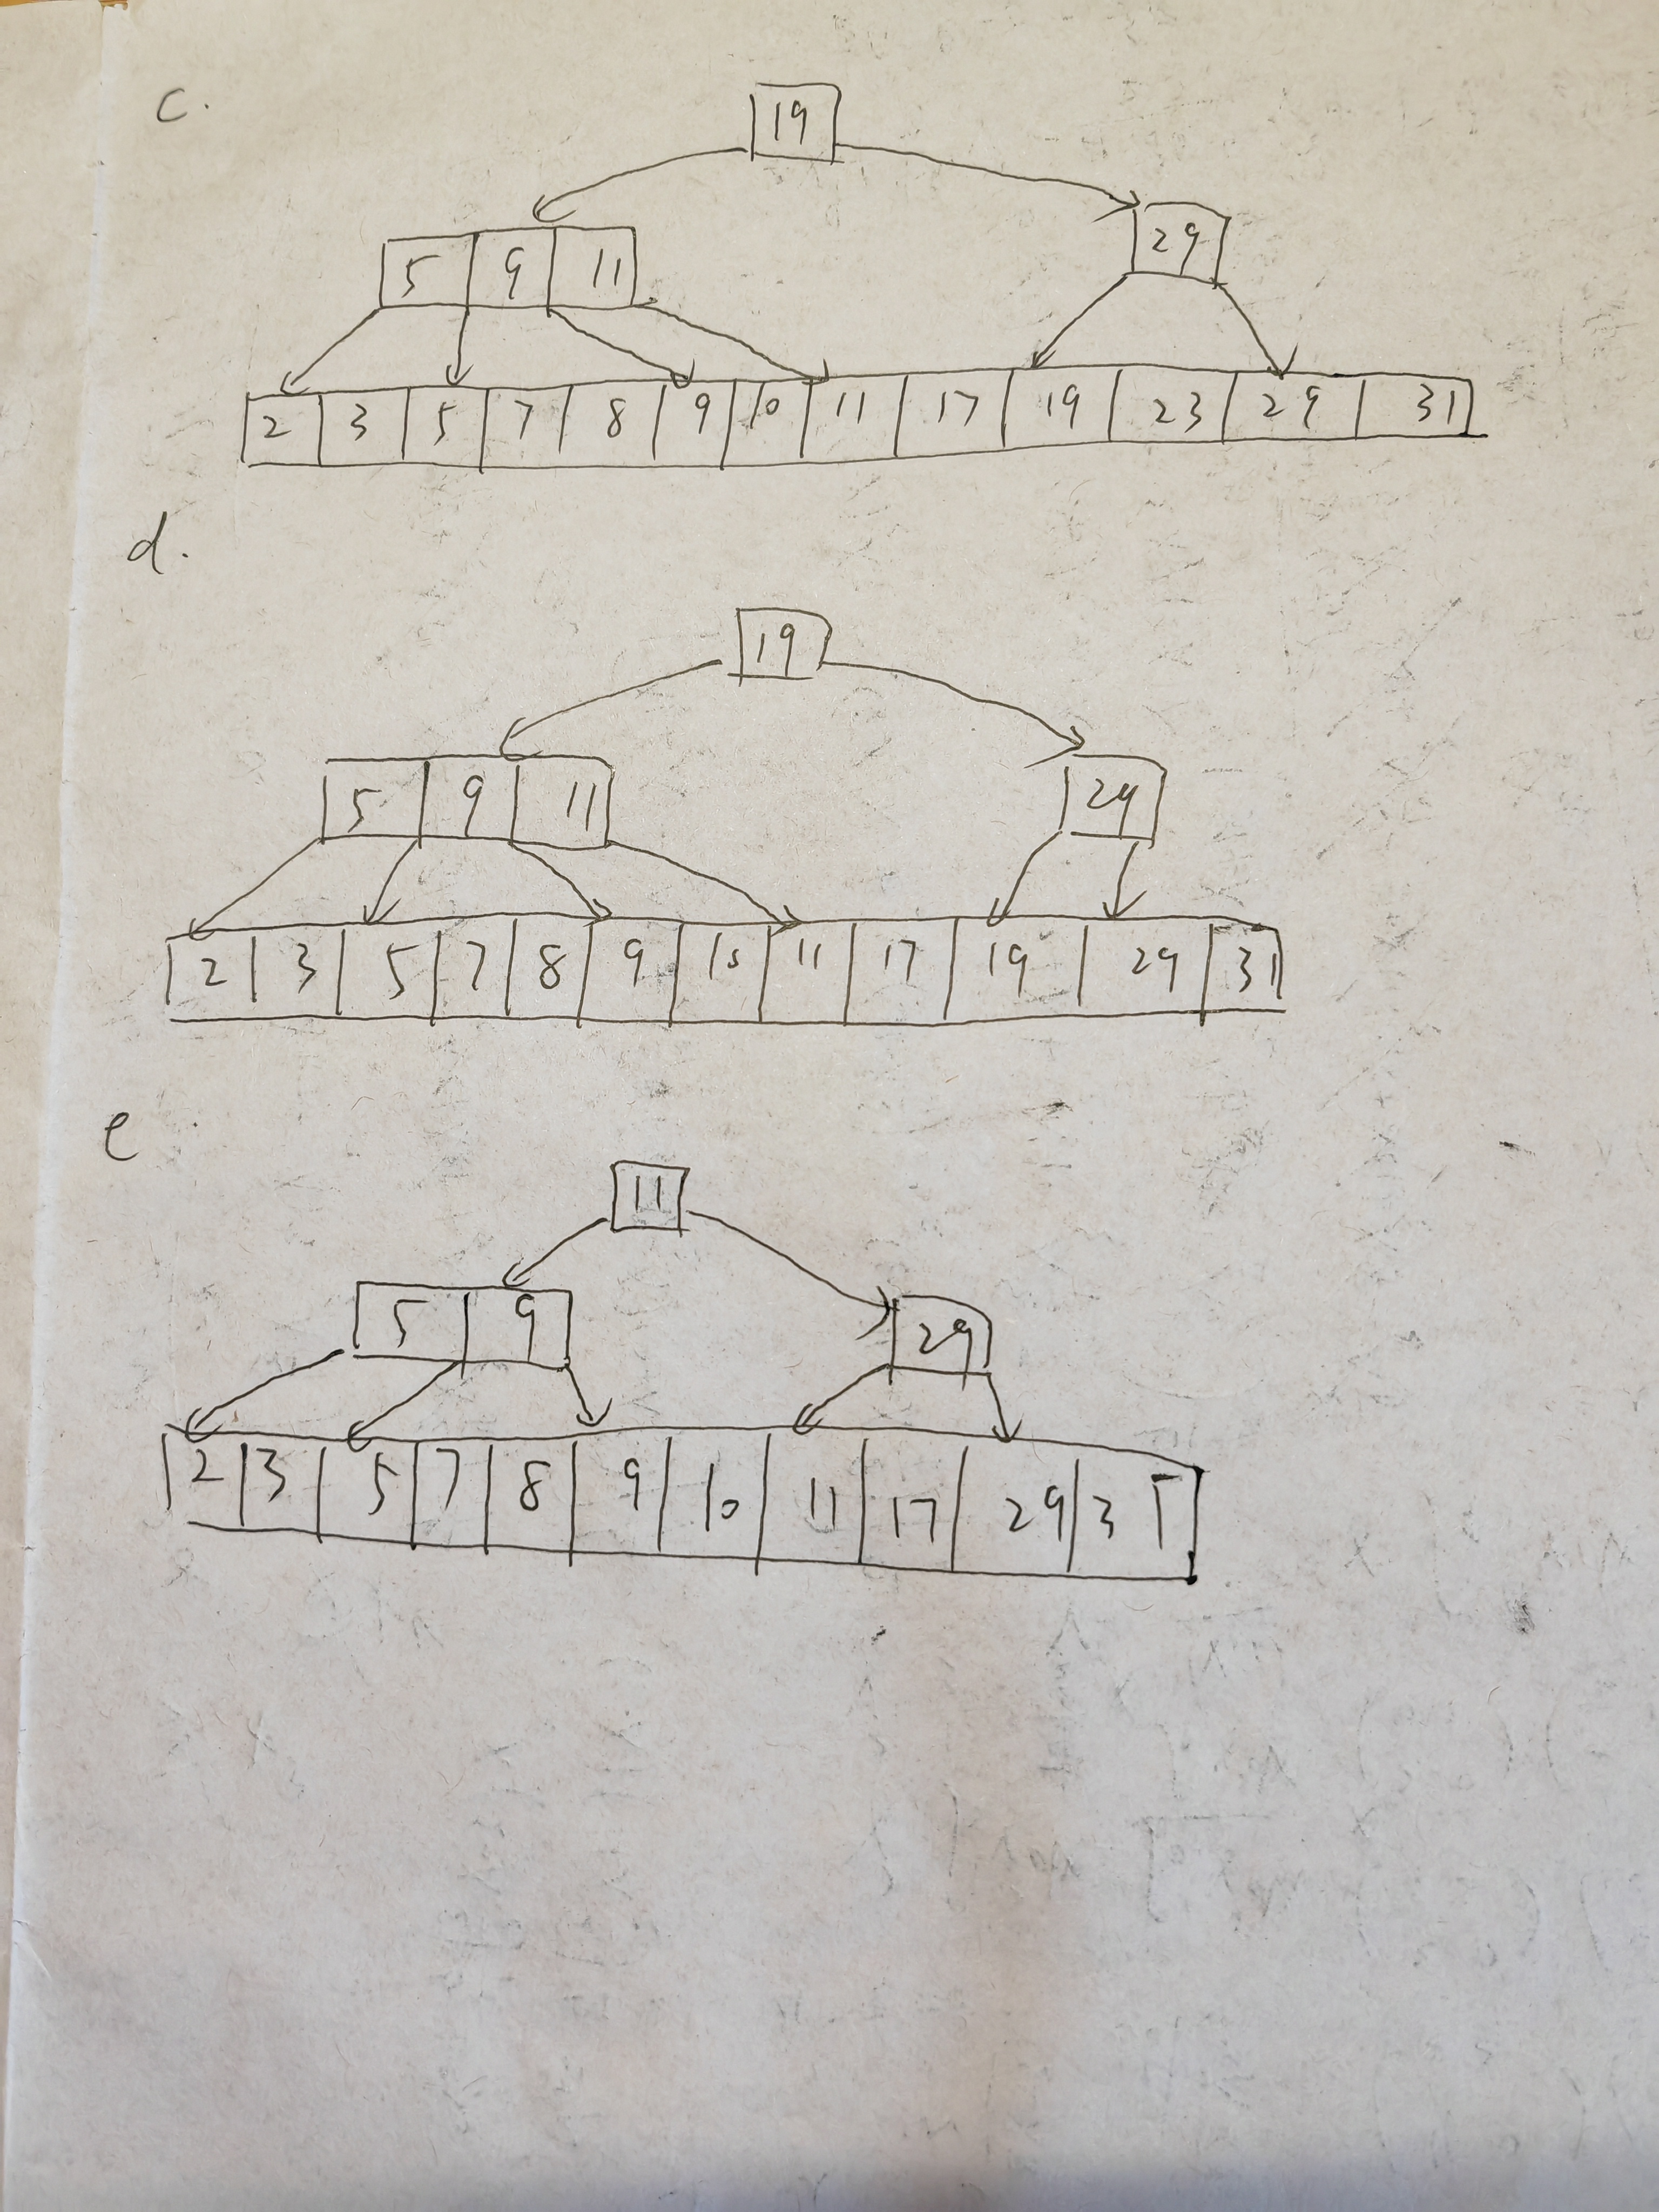 c.
19
5 9 11
29
2 3 5 7 8 9 10 11 17 19 23 29 31
d.
19
5 9 11
29
2 3 5 7 8 9 10 11 17 19 29 31
e.
11
5 9
29
2 3 5 7 8 9 10 11 17 29 31